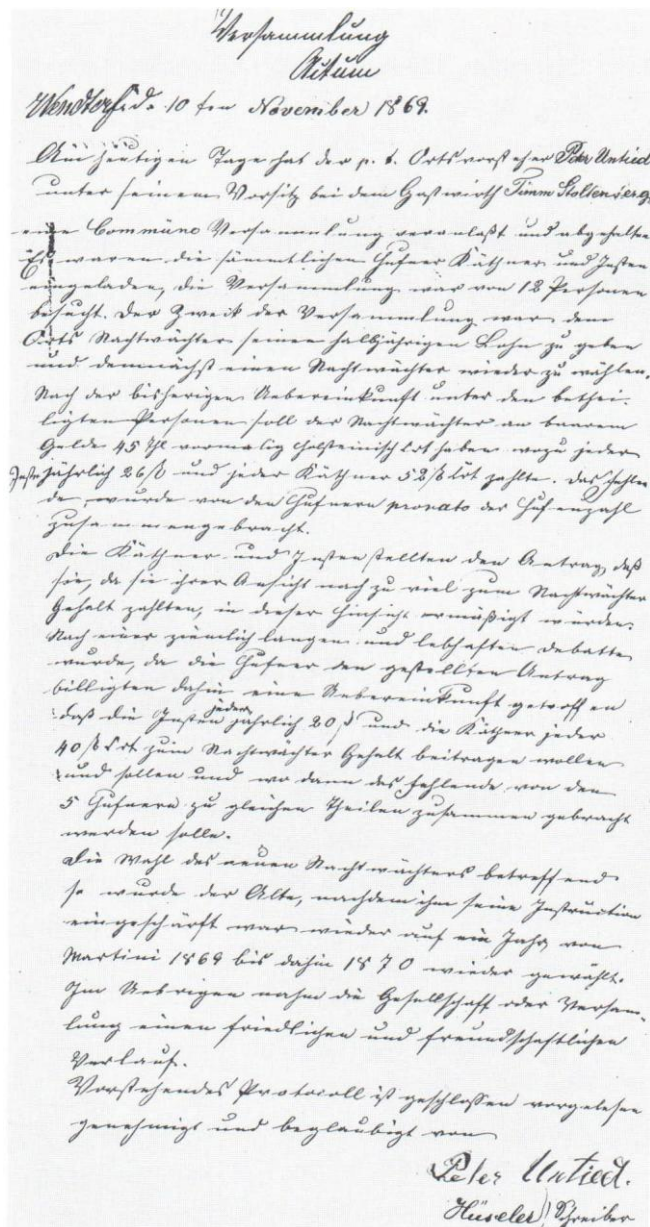 Versammlung
Actum
Wendtorf d. 10ten November 1869.
Am heutigen Tage hat der p. t. Ortsvorsteher Peter Untied
unter seinem Vorsitz bei dem Gastwirth Timm Stoltenberg
eine Commüne Versammlung veranlaßt und abgehalten
Es waren die sämmtlichen Hufner Käthner und Insten
eingeladen, die Versammlung war von 12 Personen
besucht. Der Zweck der Versammlung war dem
Orts Nachtwächter seinen halbjährigen Lohn zu geben
und demnächst einen Nachtwächter wieder zu wählen.
Nach der bisherigen Uebereinkunft unter den bethei-
ligten Personen soll der Nachtwächter an baarem
Gelde 45 Thl vormalig holsteinisch Crt haben wozu jeder
Inste jährlich 26 ß und jeder Käthner 52 ß Crt zahlte. Das fehlen
de, wurde von den Hufnern pronato der Hufenzahl
zusammengebracht.
Die Käthner und Insten stellten den Antrag, daß
sie, da sie ihrer Ansicht nach zu viel zum Nachtwächter
Gehalt zahlten, in dieser Hinsicht ermäßigt würden.
Nach einer ziemlich langen und lebhaften Debatte
wurde, da die Hufner den gestellten Antrag
billigten dahin eine Uebereinkunft getroffen
daß die Insten jeder jährlich 20 ß und die Käthner jeder
40 ß Crt zum Nachtwächter Gehalt beitragen wollen
und sollen und wo dann das fehlende von den
5 Hufnern zu gleichen Theilen zusammen gebracht
werden solle.
Die Wahl des neuen Nachtwächters betreffend
so wurde der Alte, nachdem ihm seine Instruction
eingeschärft war wieder auf ein Jahr von
Martini 1869 bis dahin 1870 wieder gewählt.
Im Uebrigen nahm die Gesellschaft oder Versam-
lung einen friedlichen und freundschaftlichen
Verlauf.
Vorstehendes Protocoll ist geschlossen vorgelesen
genehmigt und beglaubigt von
Peter Untied.
Hüseler Schreiber